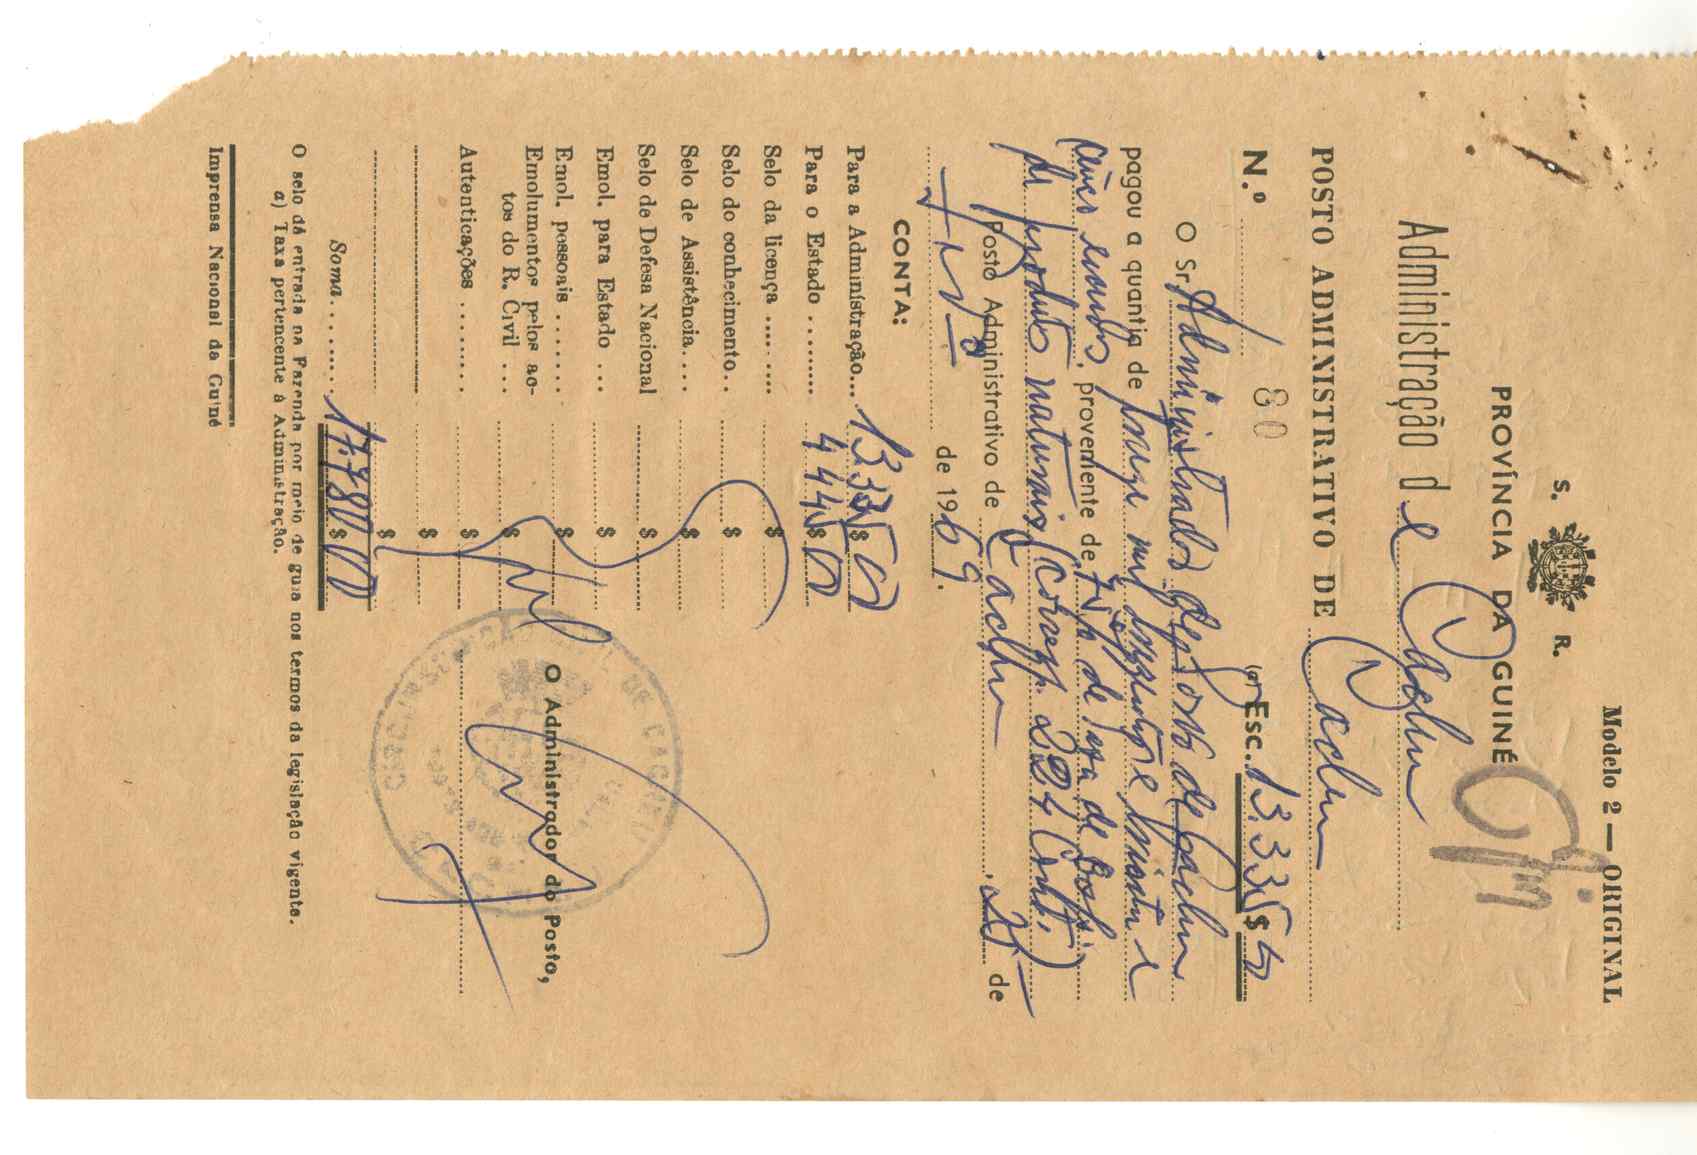 Modelo 2 — ORIGINAL
S. R.
PROVÍNCIA DA GUINÉ
Administração de Cacheu
POSTO ADMINISTRATIVO DE Cacheu
N.º 80 (a) ESC. 13.335$50
O Sr. Administrador do Posto de Cacheu
pagou a quantia de treze mil trezentos e trinta e
cinco escudos, provemente de
de produtos naturais (corresp.
Posto Administrativo de Cacheu, de
de 1969.
CONTA:
Para a Administração... 13.335$50
Para o Estado ......... 4.445$00
Selo da licença ...... $
Selo do conhecimento.. $
Selo de Assistência... $
Selo de Defesa Nacional $
Emol. para Estado ... $
Emol. pessoais ....... $
Emolumentos pelos ac-
tos do R. Civil ... $
Autenticações ........ $
$
$
Soma....... 17.780$00
O Administrador do Posto,
O selo dá entrada na Fazenda por meio de guia nos termos da legislação vigente.
a) Taxa pertencente à Administração.
Imprensa Nacional da Guiné